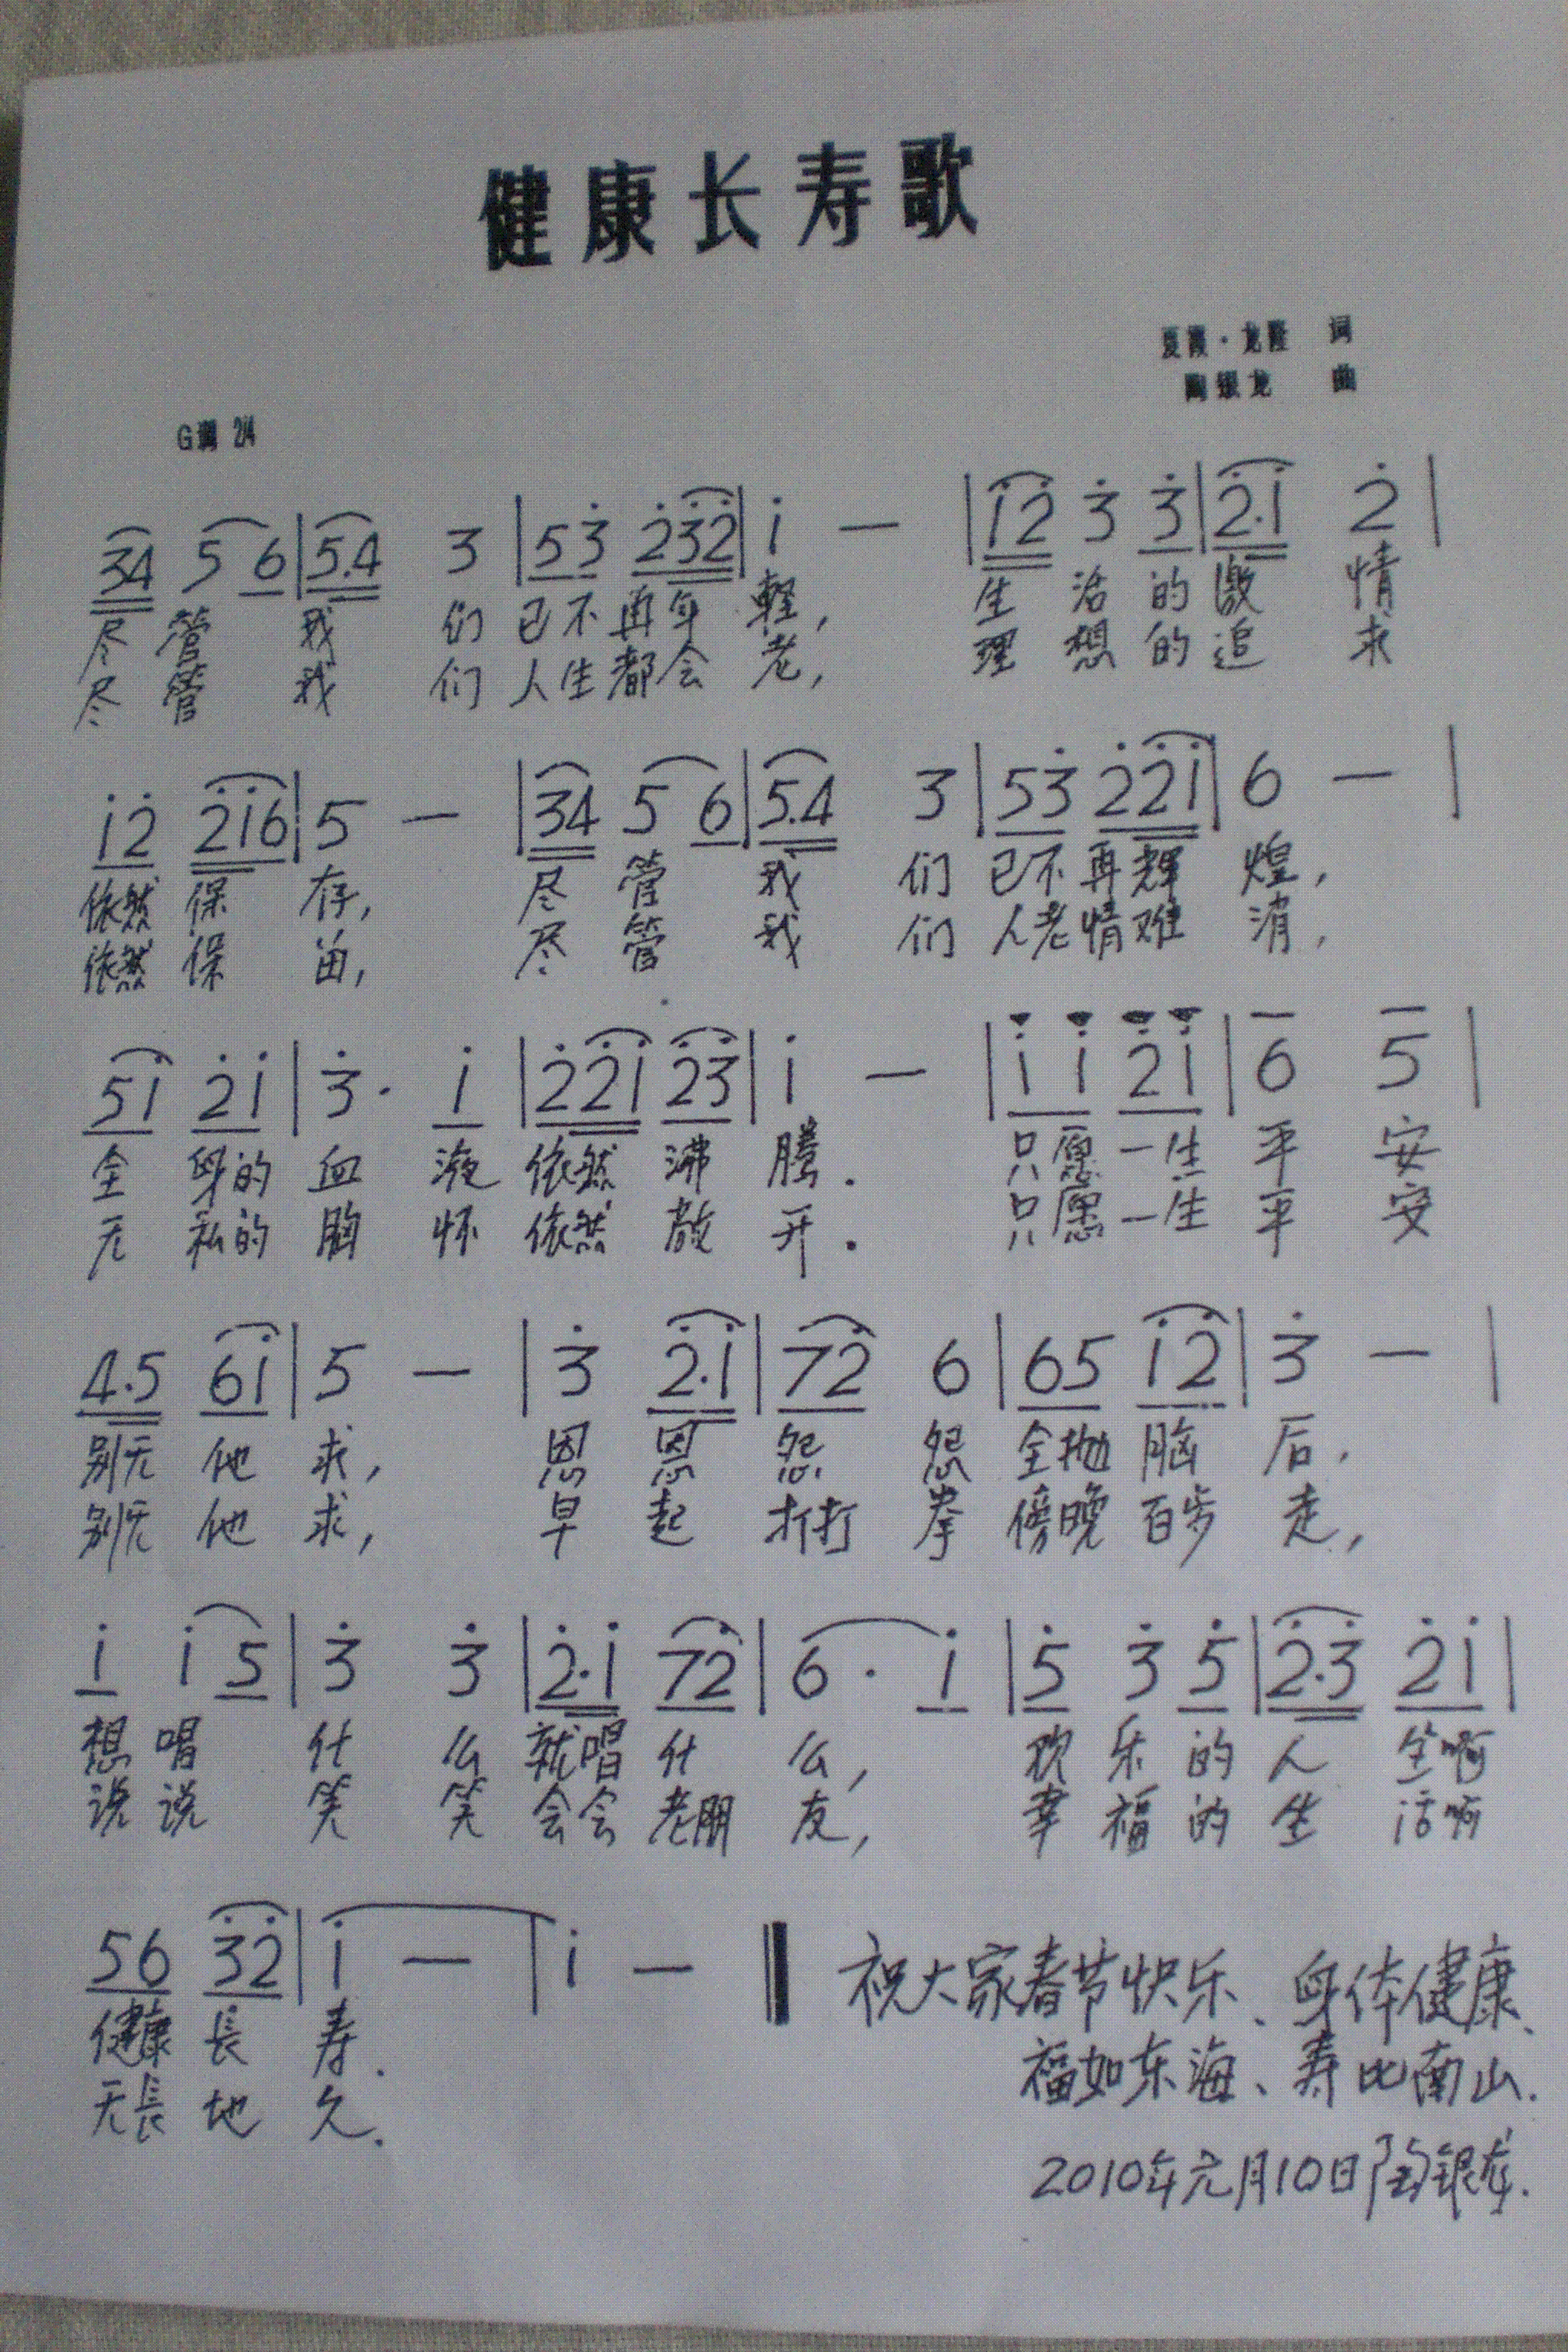 健康长寿歌
夏霞·龙隆 词
陶银龙 曲
G调 2/4
34 5 6 | 5.4 3 | 53̇ 2̇3̇2̇ | 1̇ — | 1̇2̇ 3̇ 3̇ | 2̇.1̇ 2̇ |
尽管 我 们 已不再年 軽, 生 活 的 激 情
尽管 我 们 人生都会 老, 理 想 的 追 求
1̇2̇ 2̇1̇6 | 5 — | 34 5 6 | 5.4 3 | 53̇ 2̇2̇1̇ | 6 — |
依然 保 存, 尽 管 我 们 已不再辉 煌,
依然 保 留, 尽 管 我 们 人老情难 消,
51̇ 2̇1̇ | 3̇· 1̇ | 2̇2̇1̇ 2̇3̇ | 1̇ — | 1̇ 1̇ 2̇1̇ | 6 5 |
全 身的 血 液 依然 沸 腾. 只愿一生 平 安
无 私的 胸 怀 依然 敞 开. 只愿一生 平 安
4.5 61̇ | 5 — | 3̇ 2̇.1̇ | 72̇ 6 | 65 1̇2̇ | 3̇ — |
别无 他 求, 恩 恩 怨 怨 全抛 脑 后,
别无 他 求, 早 起 打打 拳 傍晚 百步 走,
1̇ 1̇ 5 | 3̇ 3̇ | 2̇·1̇ 72̇ | 6 · 1̇ | 5̇ 3̇ 5̇ | 2̇.3̇ 2̇1̇ |
想 唱 什 么 就唱 什 么, 欢 乐 的 人 生啊
说 说 笑 笑 会会 老朋 友, 幸 福 的 生 活啊
56 3̇2̇ | 1̇ — | 1̇ — ‖
健康 長 寿.
天長 地 久.
祝大家春节快乐、身体健康、
福如东海、寿比南山.
2010年元月10日陶银龙.